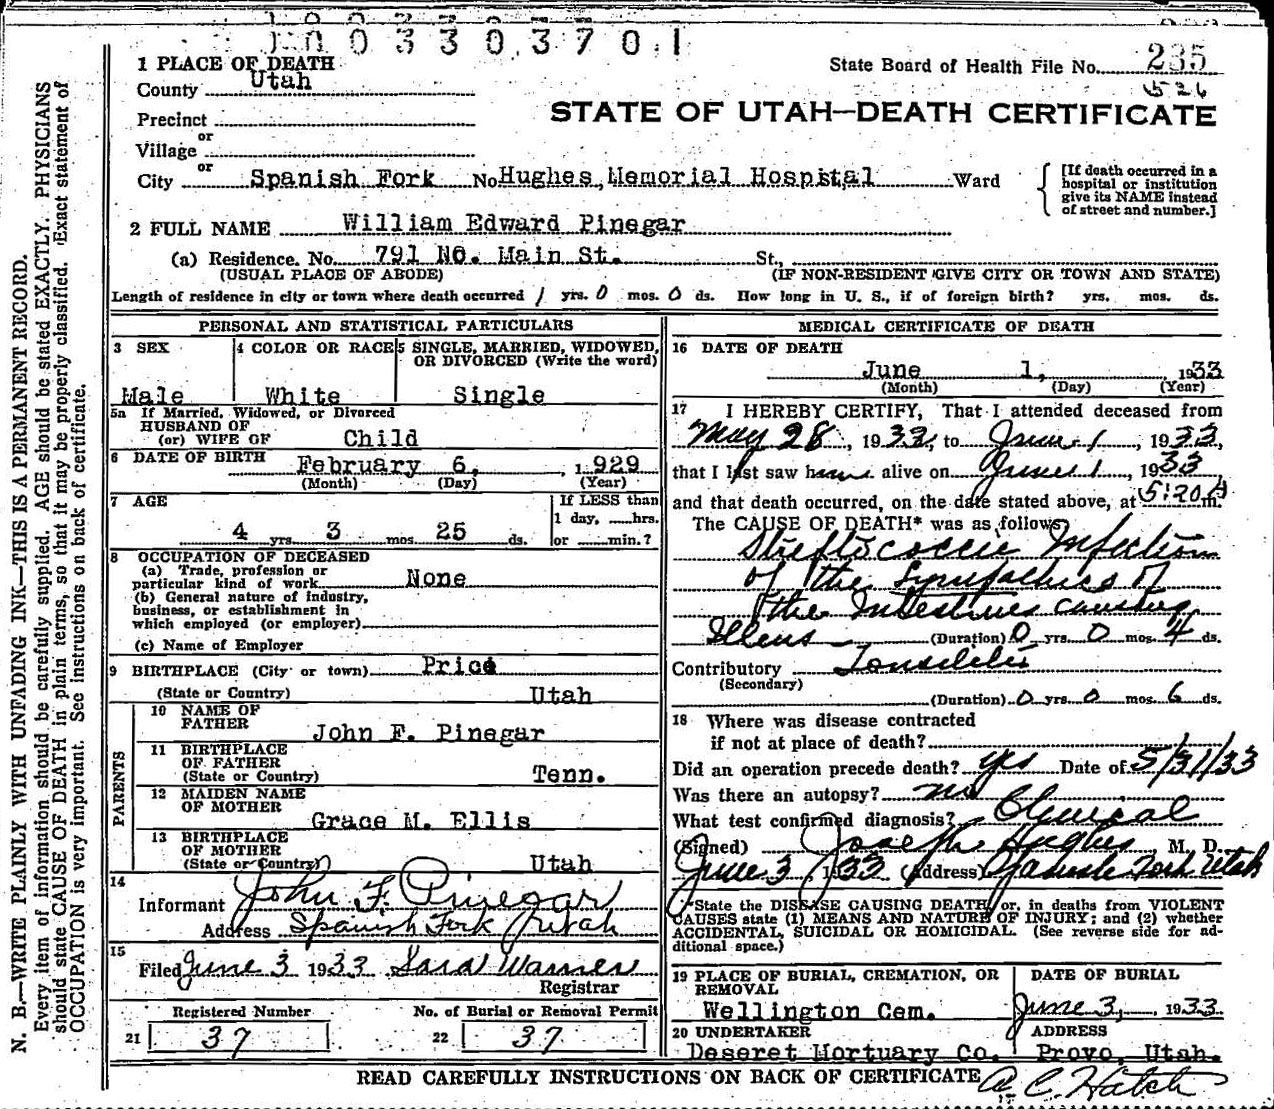 1003303701
1 PLACE OF DEATH
County Utah
State Board of Health File No. 235
526
STATE OF UTAH—DEATH CERTIFICATE
Precinct
or
Village
or
City Spanish Fork No Hughes Memorial Hospital Ward
[If death occurred in a hospital or institution give its NAME instead of street and number.]
2 FULL NAME William Edward Pinegar
(a) Residence. No. 791 No. Main St. St.,
(USUAL PLACE OF ABODE) (IF NON-RESIDENT GIVE CITY OR TOWN AND STATE)
Length of residence in city or town where death occurred 1 yrs. 0 mos. 0 ds. How long in U. S., if of foreign birth? yrs. mos. ds.
PERSONAL AND STATISTICAL PARTICULARS
3 SEX 4 COLOR OR RACE 5 SINGLE, MARRIED, WIDOWED, OR DIVORCED (Write the word)
Male White Single
5a If Married, Widowed, or Divorced
HUSBAND OF
(or) WIFE OF Child
6 DATE OF BIRTH February 6, 1929
(Month) (Day) (Year)
7 AGE If LESS than
1 day, ......hrs.
4 yrs. 3 mos. 25 ds. or ......min.?
8 OCCUPATION OF DECEASED
(a) Trade, profession or
particular kind of work None
(b) General nature of industry,
business, or establishment in
which employed (or employer)
(c) Name of Employer
9 BIRTHPLACE (City or town) Price
(State or Country) Utah
PARENTS
10 NAME OF
FATHER John F. Pinegar
11 BIRTHPLACE
OF FATHER
(State or Country) Tenn.
12 MAIDEN NAME
OF MOTHER
Grace M. Ellis
13 BIRTHPLACE
OF MOTHER
(State or Country) Utah
14
Informant John F. Pinegar
Address Spanish Fork Utah
15
Filed June 3 1933 Sara Warner
Registrar
Registered Number No. of Burial or Removal Permit
21 37 22 37
MEDICAL CERTIFICATE OF DEATH
16 DATE OF DEATH
June 1, 1933
(Month) (Day) (Year)
17 I HEREBY CERTIFY, That I attended deceased from
May 28, 1933, to June 1, 1933,
that I last saw him alive on June 1, 1933
and that death occurred, on the date stated above, at 5:20 A m.
The CAUSE OF DEATH* was as follows:
Streptococcic Infection
of the Lymphatics of
the Intestines causing
Illeus (Duration) 0 yrs. 0 mos. 4 ds.
Contributory Tonsilitis
(Secondary)
(Duration) 0 yrs. 0 mos. 6 ds.
18 Where was disease contracted
if not at place of death?
Did an operation precede death? yes Date of 5/31/33
Was there an autopsy? no
What test confirmed diagnosis? Clinical
(Signed) Joseph Hughes, M. D.
June 3, 1933 (Address) Spanish Fork Utah
*State the DISEASE CAUSING DEATH, or, in deaths from VIOLENT
CAUSES state (1) MEANS AND NATURE OF INJURY; and (2) whether
ACCIDENTAL, SUICIDAL OR HOMICIDAL. (See reverse side for ad-
ditional space.)
19 PLACE OF BURIAL, CREMATION, OR REMOVAL DATE OF BURIAL
Wellington Cem. June 3, 1933
20 UNDERTAKER ADDRESS
Deseret Mortuary Co. Provo, Utah.
READ CAREFULLY INSTRUCTIONS ON BACK OF CERTIFICATE
A C. Hatch
N. B.—WRITE PLAINLY WITH UNFADING INK—THIS IS A PERMANENT RECORD.
Every item of information should be carefully supplied. AGE should be stated EXACTLY. PHYSICIANS
should state CAUSE OF DEATH in plain terms, so that it may be properly classified. Exact statement of
OCCUPATION is very important. See instructions on back of certificate.